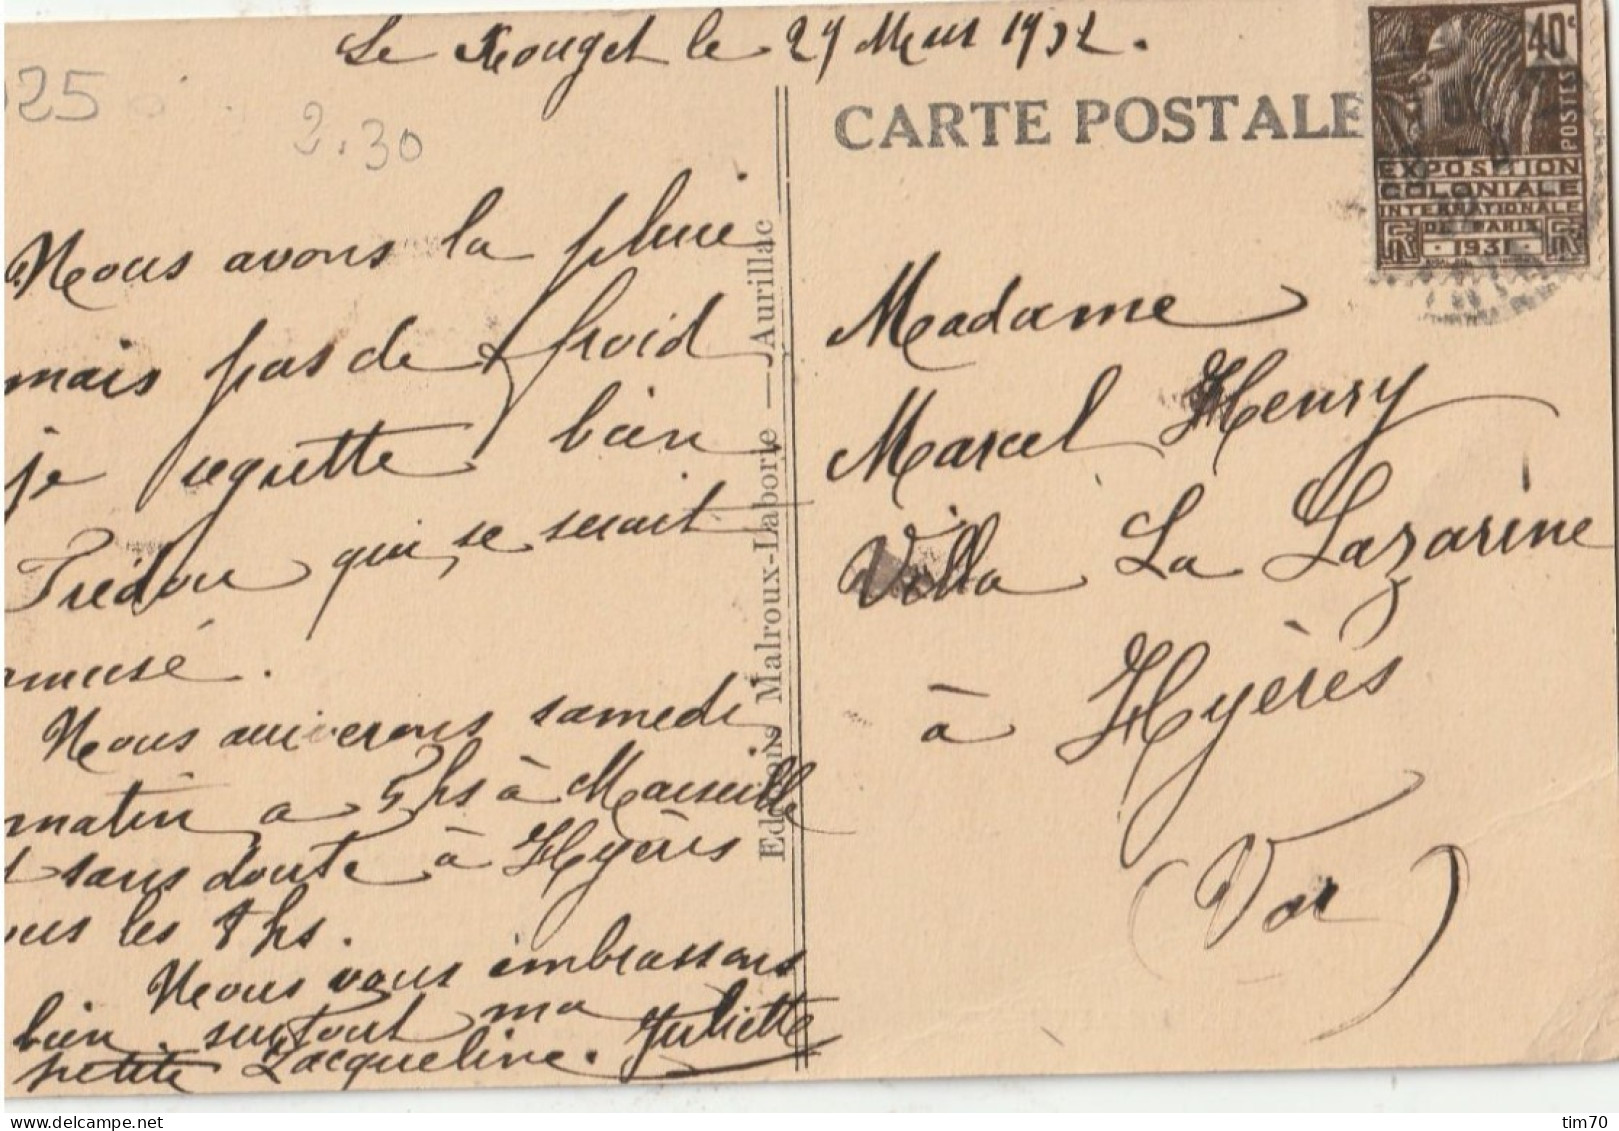 Le Rouget le 29 Mars 1932.
25
2.30
CARTE POSTALE
40c
POSTES
EXPOSITION
COLONIALE
INTERNATIONALE
DE PARIS
1931
Nous avons la pluie
mais pas de froid
je regrette bien
qui se serait
amusé.
Nous arriverons samedi
matin a 5 hs à Marseille
et sans doute à Hyères
vers les 8 hs.
Nous vous embrassons
bien surtout ma
petite Jacqueline. Juliette
Editions Malroux-Laborie — Aurillac
Madame
Marcel Henry
Villa La Lazarine
à Hyères
(Var)
delcampe.net
tim70